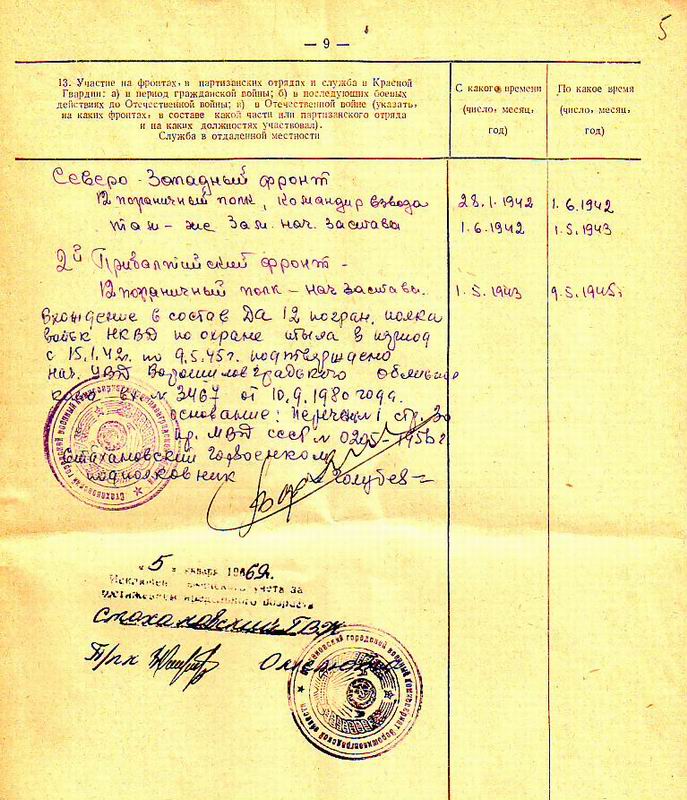 5
— 9 —
13. Участие на фронтах, в партизанских отрядах и служба в Красной
Гвардии: а) в период гражданской войны; б) в последующих боевых
действиях до Отечественной войны; в) в Отечественной войне (указать,
на каких фронтах, в составе какой части или партизанского отряда
и на каких должностях участвовал).
Служба в отдаленной местности
С какого времени
(число, месяц,
год)
По какое время
(число, месяц,
год)
Северо-Западный фронт
12 пограничный полк, командир взвода 28.1.1942 1.6.1942
там-же Зам. нач. заставы 1.6.1942 1.5.1943
2й Прибалтийский фронт -
12 пограничный полк - нач заставы. 1.5.1943 9.5.1945.
Вхождение в состав ДА 12 погран. полка
войск НКВД по охране тыла в период
с 15.1.42г. по 9.5.45г. подтверждено
нач. УВД Ворошиловградского
вх № 3467 от 10.9.1980 года.
основание: Перечень 1 стр. 30
пр. МВД СССР № 0205-1956г
Стахановский горвоенком
подполковник Голубев
„5" января 1969г.
Исключен с воинского учета за
достижением предельного возраста
Стахановский ГВК
П/пк